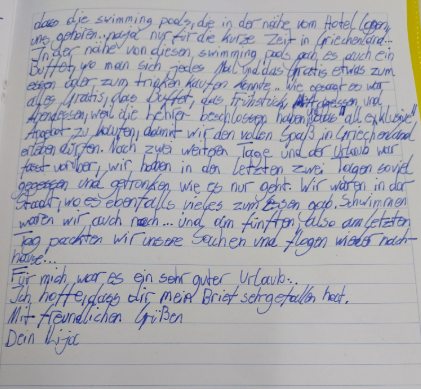 dass die swimming pools, die in der nähe vom Hotel liegen,
uns gehören.. naja nur für die kurze Zeit in Griechenland...
In der nähe von diesen swimming pools gab es auch ein
Buffet, wo man sich jedes Mal und das Gratis etwas zum
essen oder zum trinken kaufen könnte... wie gesagt es war
alles Gratis, das Buffet, das frühstück, essen und
Abendessen, weil die Lehrer beschlossen haben das "all exklusive"
Angebot zu kaufen, damit wir den vollen Spaß in Griechenland
erleben dürfen. Nach zwei weiteren Tage und der Urlaub war
fast vorüber, wir haben in den letzten zwei Tagen soviel
gegessen und getrunken wie es nur geht. Wir waren in der
Stadt, wo es ebenfalls vieles zum essen gab. Schwimmen
waren wir auch noch... und am fünften, also am letzten
Tag packten wir unsere Sachen und flogen wieder nach-
hause...
Für mich war es ein sehr guter Urlaub..
Ich hoffe, dass dir mein Brief sehr gefallen hat.
Mit freundlichen Grüßen
Dein